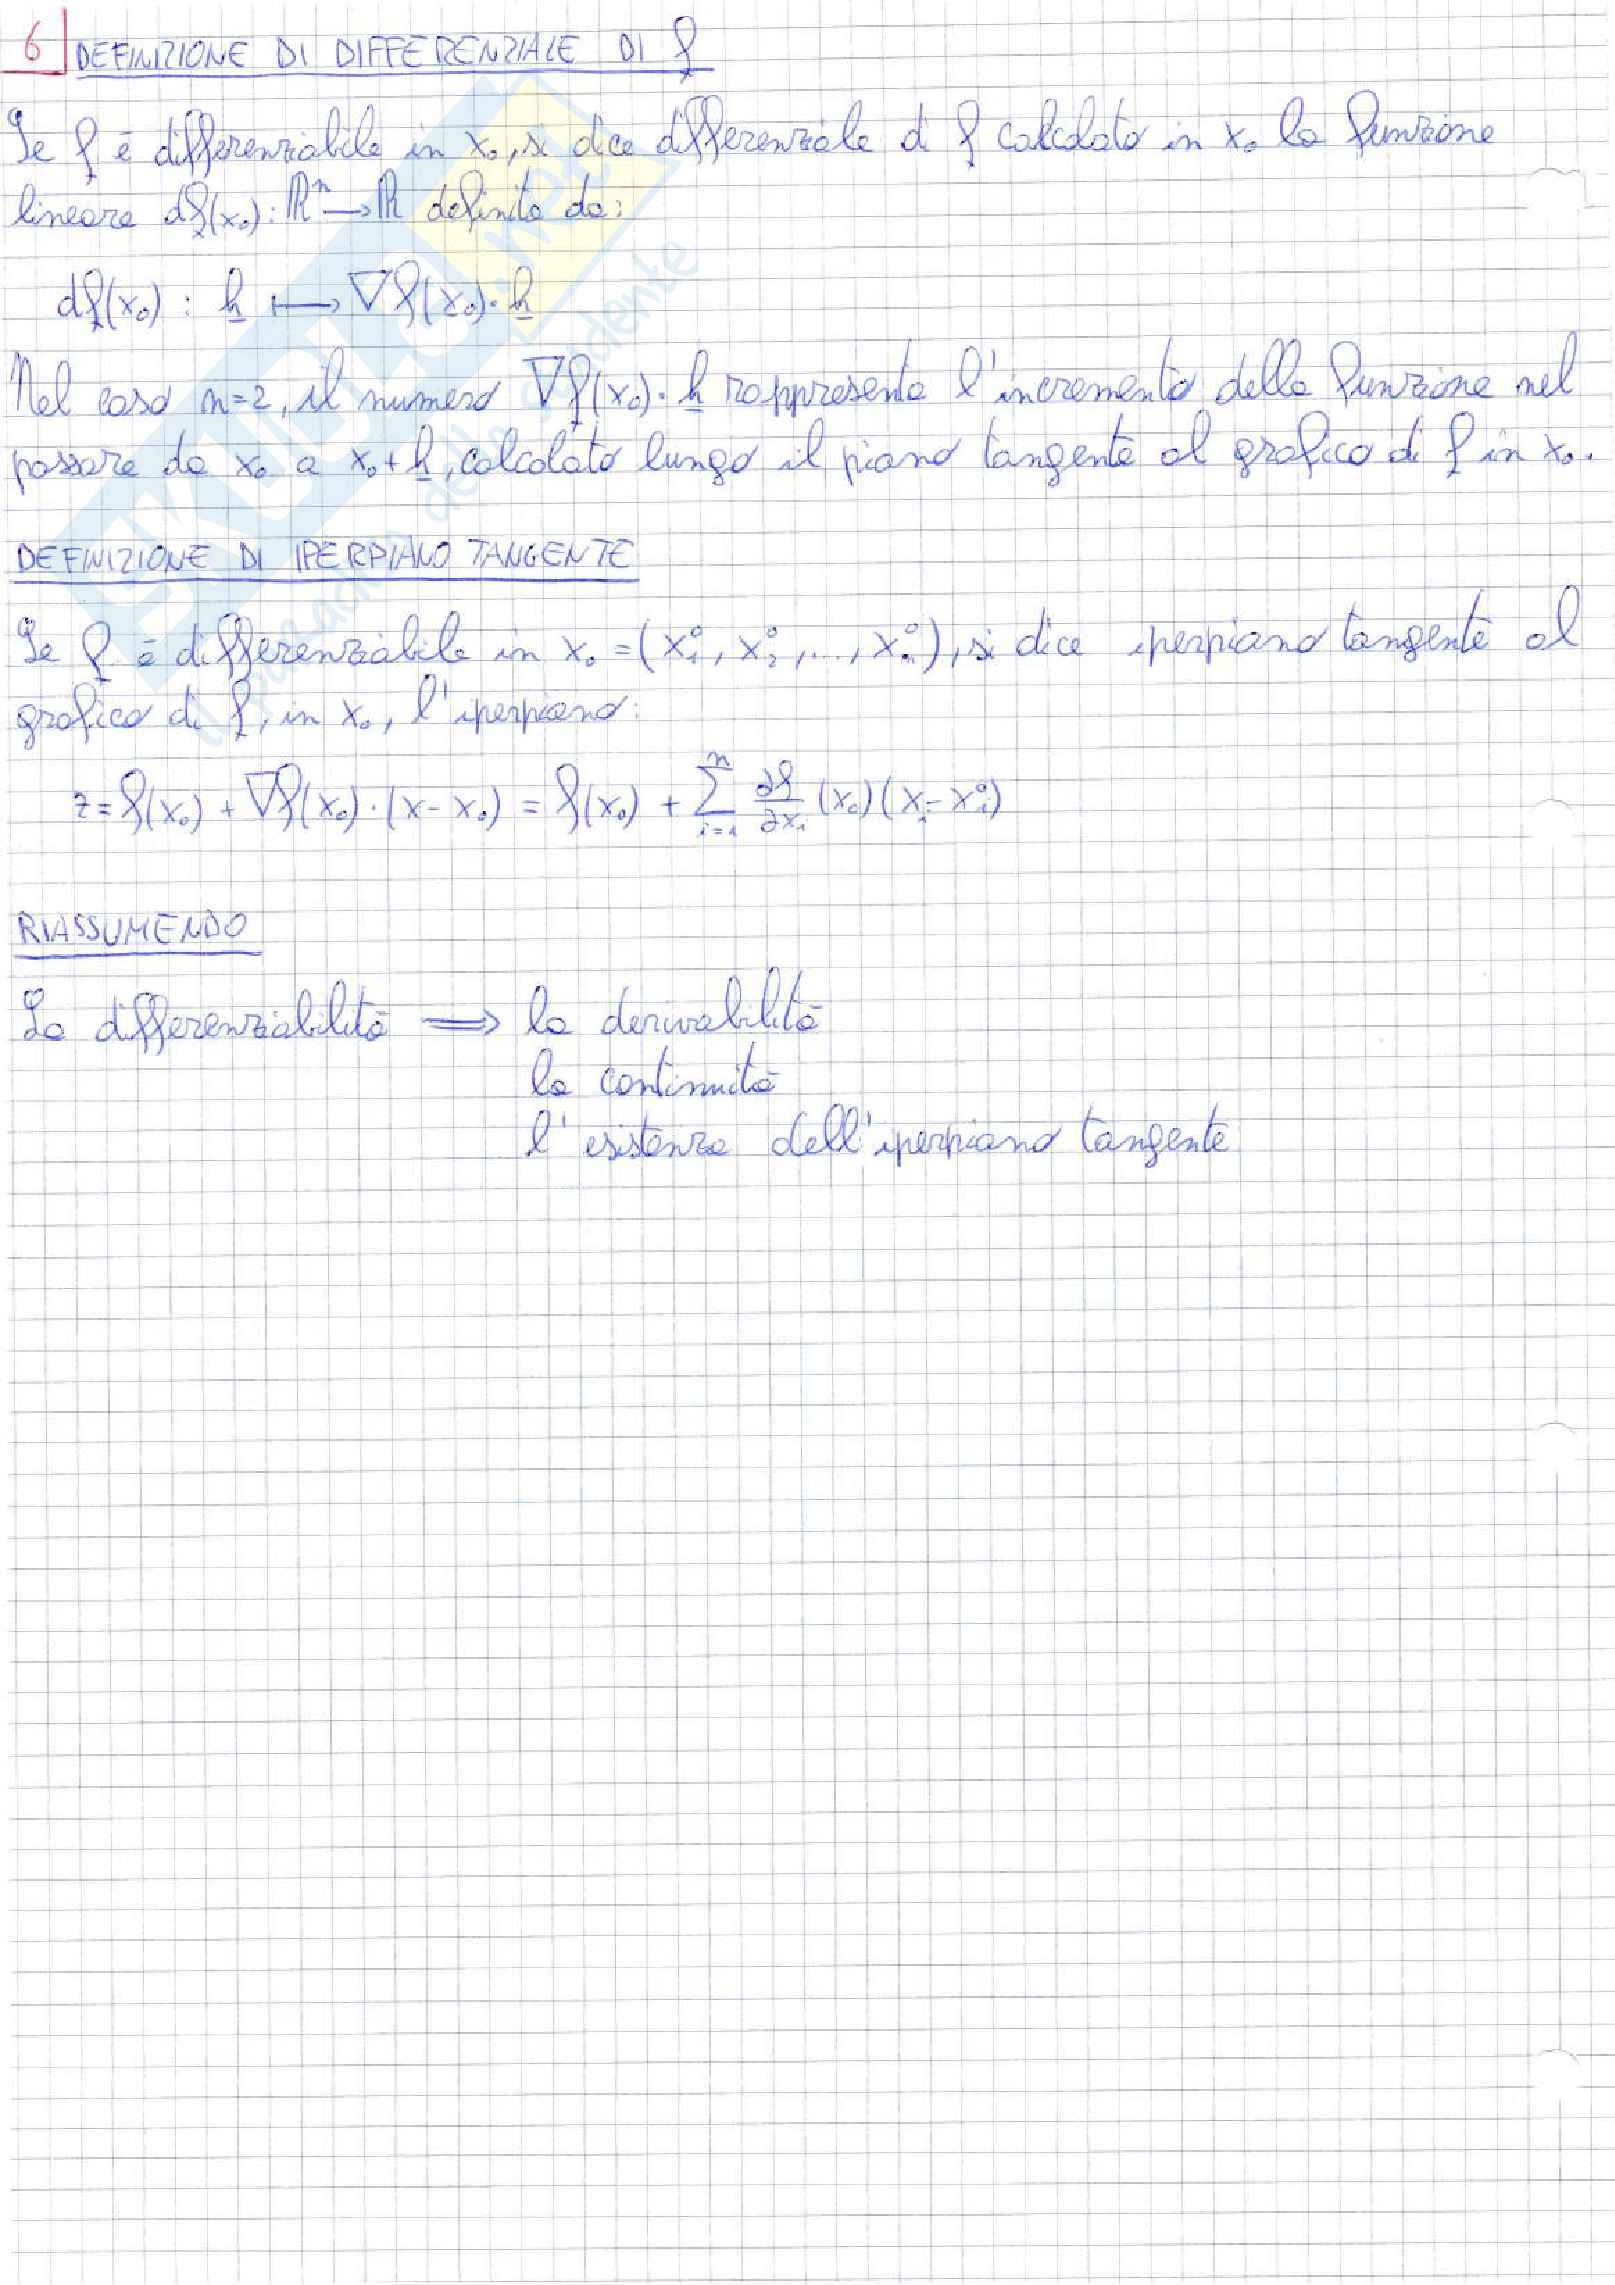 6 DEFINIZIONE DI DIFFERENZIALE DI f
Se f è differenziabile in x₀, si dice differenziale di f calcolato in x₀ la funzione
lineare df(x₀): ℝⁿ → ℝ definita da:
df(x₀) : h ⟼ ∇f(x₀)·h
Nel caso n=2, il numero ∇f(x₀)·h rappresenta l'incremento della funzione nel
passare da x₀ a x₀+h, calcolato lungo il piano tangente al grafico di f in x₀.
DEFINIZIONE DI IPERPIANO TANGENTE
Se f è differenziabile in x₀ = (x₁⁰, x₂⁰, ..., xₙ⁰), si dice iperpiano tangente al
grafico di f, in x₀, l'iperpiano:
z = f(x₀) + ∇f(x₀)·(x - x₀) = f(x₀) + ∑ᵢ₌₁ⁿ ∂f/∂xᵢ (x₀)(xᵢ - xᵢ⁰)
RIASSUMENDO
La differenziabilità ⟹ la derivabilità
la continuità
l'esistenza dell'iperpiano tangente
SKUOLA.net
il paradiso dello studente